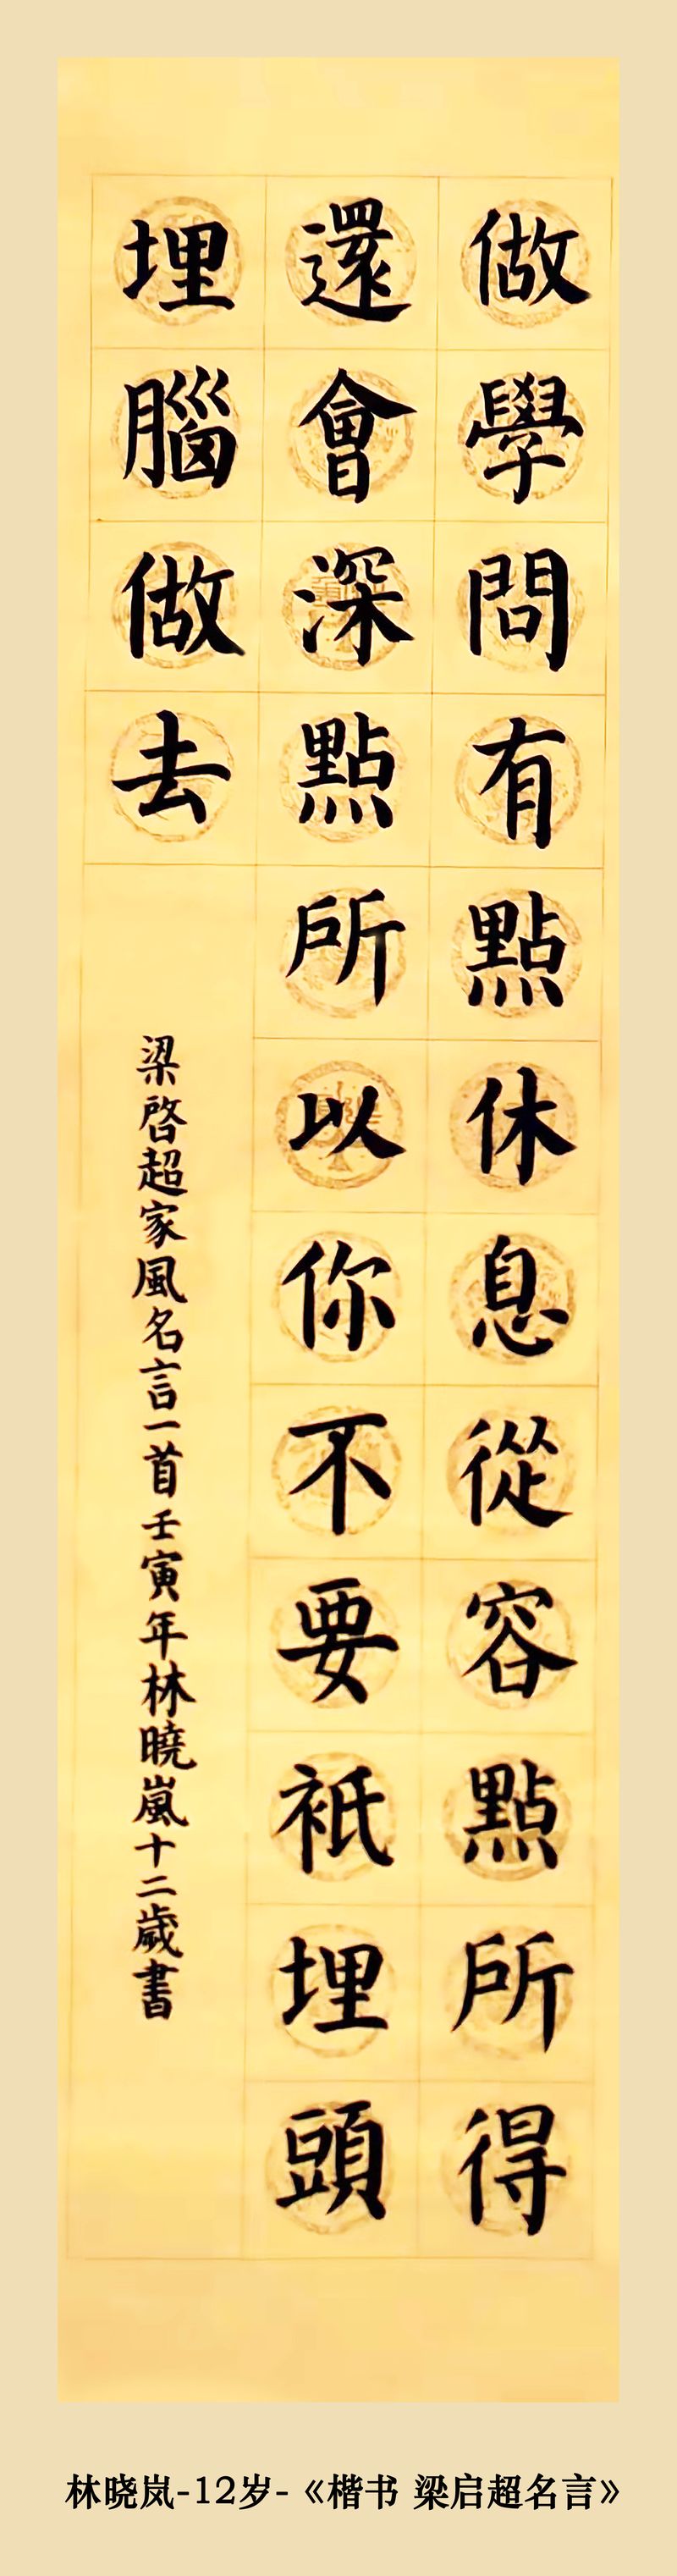 做學問有點休息從容點所得
還會深點所以你不要衹埋頭
埋腦做去
梁啓超家風名言一首壬寅年林曉嵐十二歲書
林晓岚-12岁-《楷书 梁启超名言》